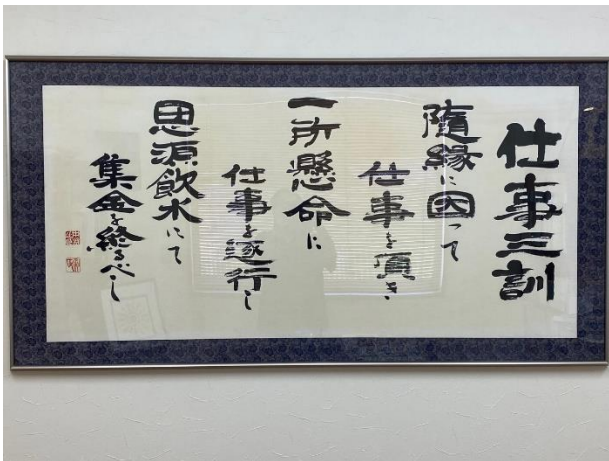 仕事三訓
隨縁に因って
仕事を頂き、
一所懸命に
仕事を遂行し
思源飲水にて
集金を終るべし